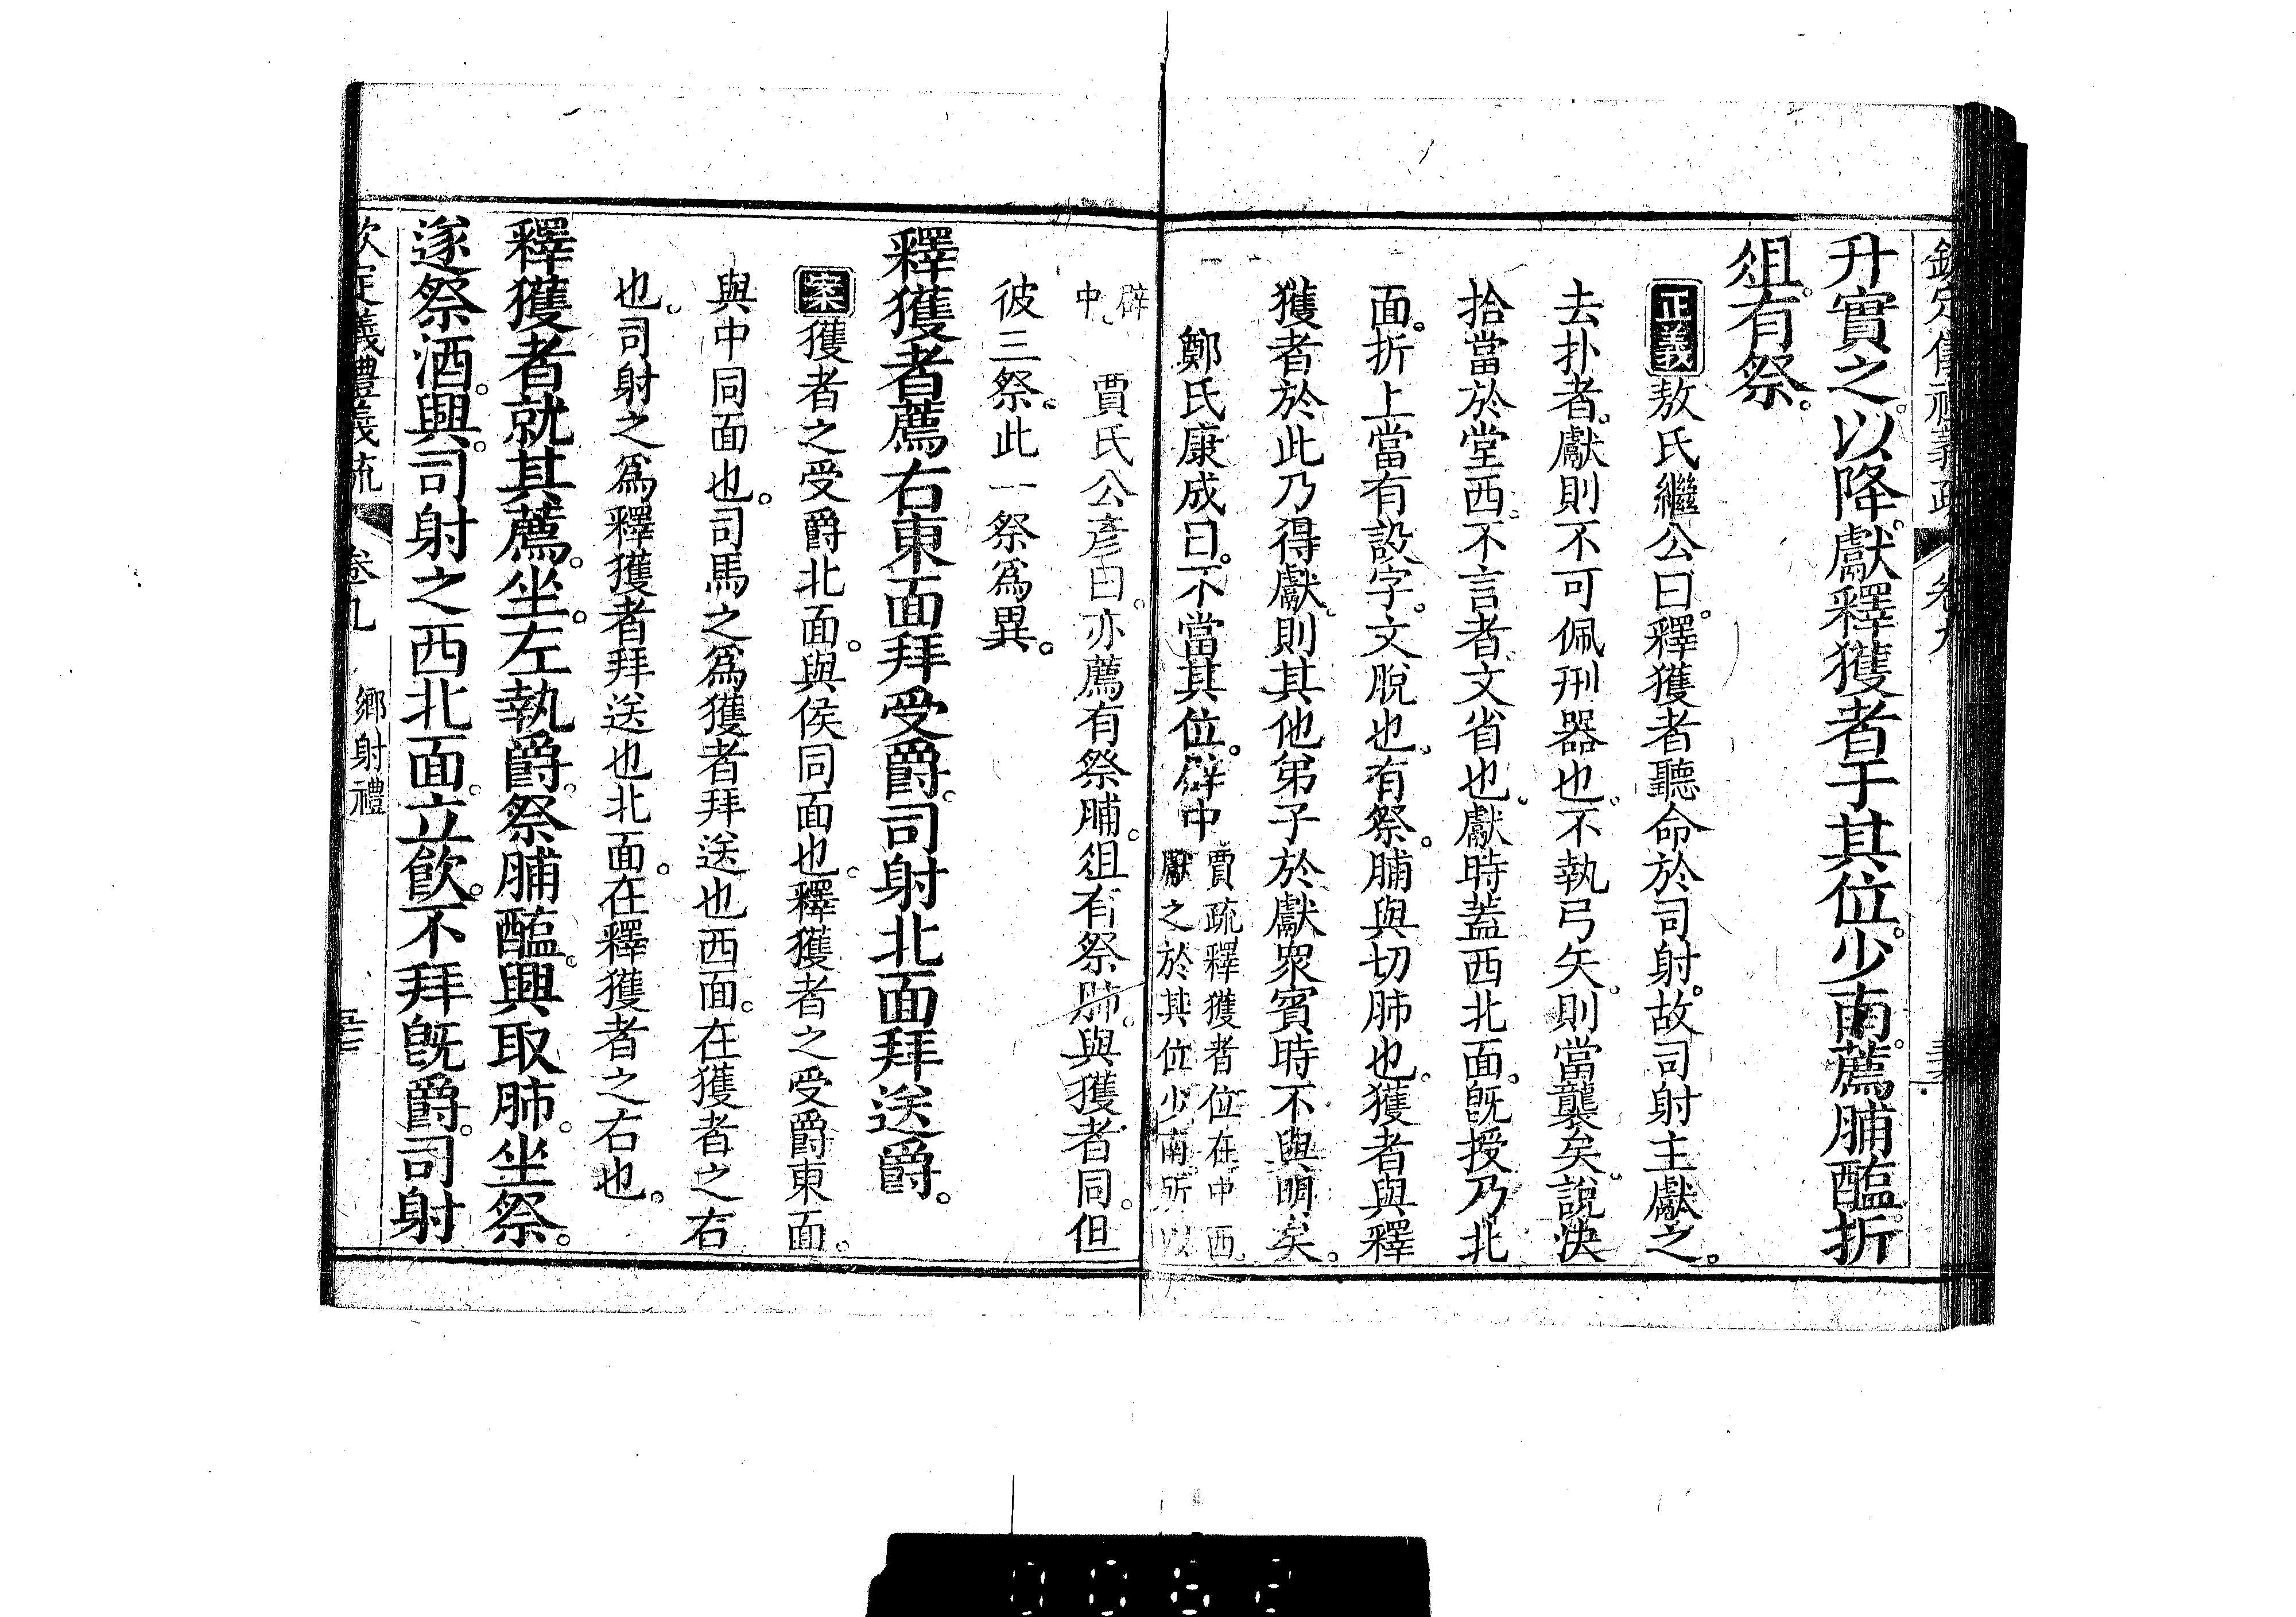 升實之。以降。獻釋獲者于其位。少南。薦脯醢。折
俎。有祭。
正義敖氏繼公曰。釋獲者聽命於司射。故司射主獻之。
去扑者。獻則不可佩刑器也。不執弓矢。則當襲矣。說決
拾當於堂西。不言者。文省也。獻時蓋西北面。旣授乃北
面。折上當有設字。文脫也。有祭。脯與切肺也。獲者與釋
獲者於此乃得獻。則其他弟子於獻衆賓時不與。明矣。
鄭氏康成曰。不當其位。辟中 賈疏釋獲者位在中西。獻之於其位少南。所以
辟中。 賈氏公彥曰。亦薦有祭脯。俎有祭肺。與獲者同。但
彼三祭。此一祭爲異。
釋獲者薦右東面拜受爵。司射北面拜送爵。
案獲者之受爵北面。與侯同面也。釋獲者之受爵東面。
與中同面也。司馬之爲獲者拜送也西面。在獲者之右
也。司射之爲釋獲者拜送也北面。在釋獲者之右也。
釋獲者就其薦。坐。左執爵。祭脯醢。興取肺。坐祭。
遂祭酒。興。司射之西。北面。立飮。不拜旣爵。司射
欽定儀禮義疏 卷九 鄉射禮